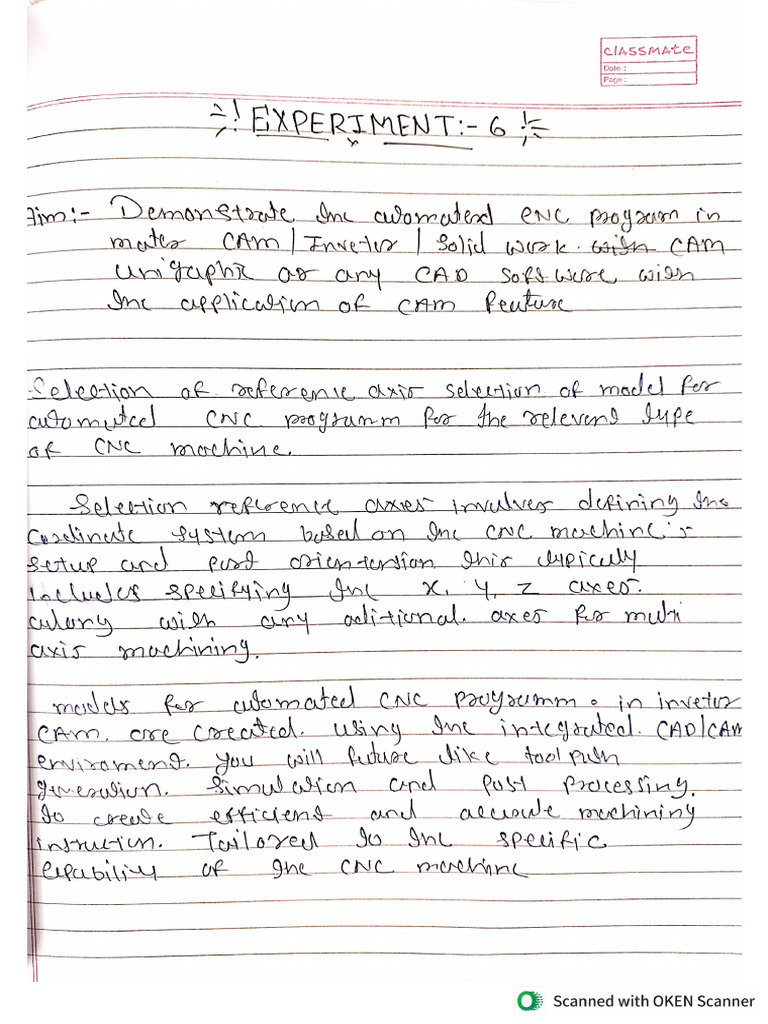 classmate
Date :
Page :
EXPERIMENT:- 6
Aim:- Demonstrate the automated CNC program in
mater CAM | Invetor | Solid work with CAM
unigraphic or any CAD software with
the application of CAM feuture
Selection of reference axis selection of model for
automated CNC programm for the relevent type
of CNC machine.
Selection reference axies involves defining the
coordinate system based on the CNC machine's
setup and part orientension this typically
includes specifying the x, y, z axes.
alony with any aditional axes for multi
axis machining.
models for automated CNC programm. in invetor
CAM. are created. using the integrated. CAD/CAM
enviroment. you will future like toolpath
gineration. Simulation and post processing.
to create efficient and accurate machining
instruction. Tailored to the specific
capability of the CNC machine
Scanned with OKEN Scanner